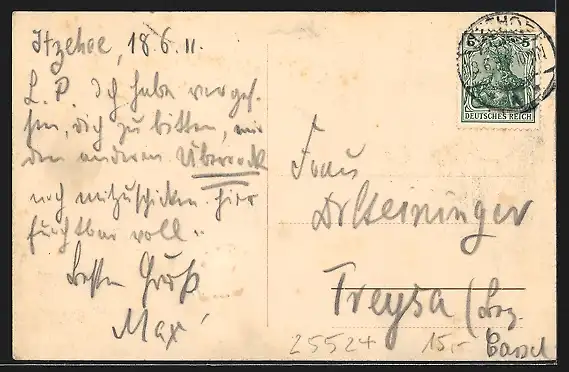 Itzehoe, 18.6.11.
L. P. Ich habe verges-
sen, dich zu bitten, mir
den anderen Überrock
noch mitzuschicken. Hier
furchtbar voll.
Besten Gruß
Max
5 5
DEUTSCHES REICH
Frau
Dr Steininger
Treysa (Bez.
Cassel
25524 15,-